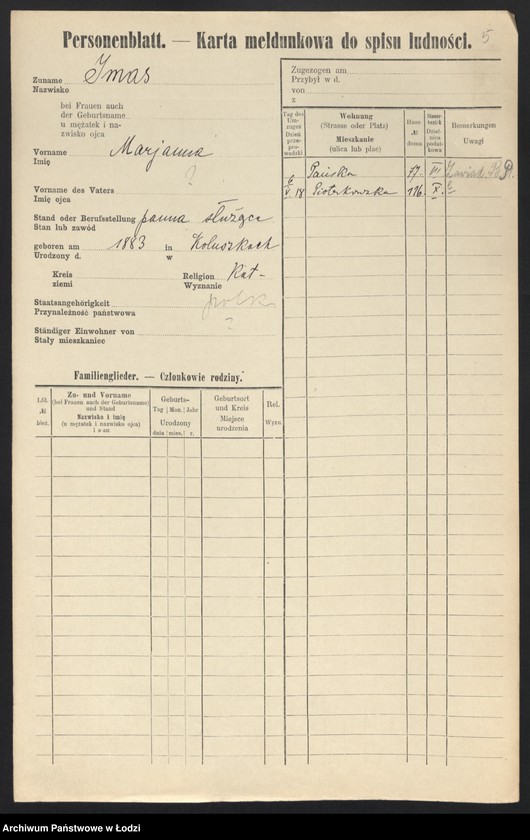 5
Personenblatt. — Karta meldunkowa do spisu ludności.
Zuname Imas
Nazwisko
bei Frauen auch
der Geburtsname
u mężatek i na-
zwisko ojca
Vorname Marjanna
Imię
?
Vorname des Vaters
Imię ojca
Stand oder Berufsstellung panna służąca
Stan lub zawód
geboren am 1883 in Koluszkach
Urodzony d. w
Kreis Religion Kat-
ziemi Wyznanie
Staatsangehörigkeit polsk
Przynależność państwowa
Ständiger Einwohner von ?
Stały mieszkaniec
Familienglieder. — Członkowie rodziny.
Lfd. № bież.
Zu- und Vorname
(bei Frauen auch der Geburtsname)
und Stand
Nazwisko i imię
(u mężatek i nazwisko ojca)
i stan
Geburts-
Tag Mon. Jahr
Urodzony
dnia mies. r.
Geburtsort
und Kreis
Miejsce
urodzenia
Rel.
Wyzn.
Zugezogen am
Przybył w d.
von
z
Tag des
Um-
zuges
Dzień
prze-
prowadzki
Wohnung
(Strasse oder Platz)
Mieszkanie
(ulica lub plac)
Haus
№
domu
Steuer-
bezirk
Dziel-
nica
podat-
kowa
Bemerkungen
Uwagi
Pańska 77 VI
6/V 18 Piotrkowska 116 X
Archiwum Państwowe w Łodzi